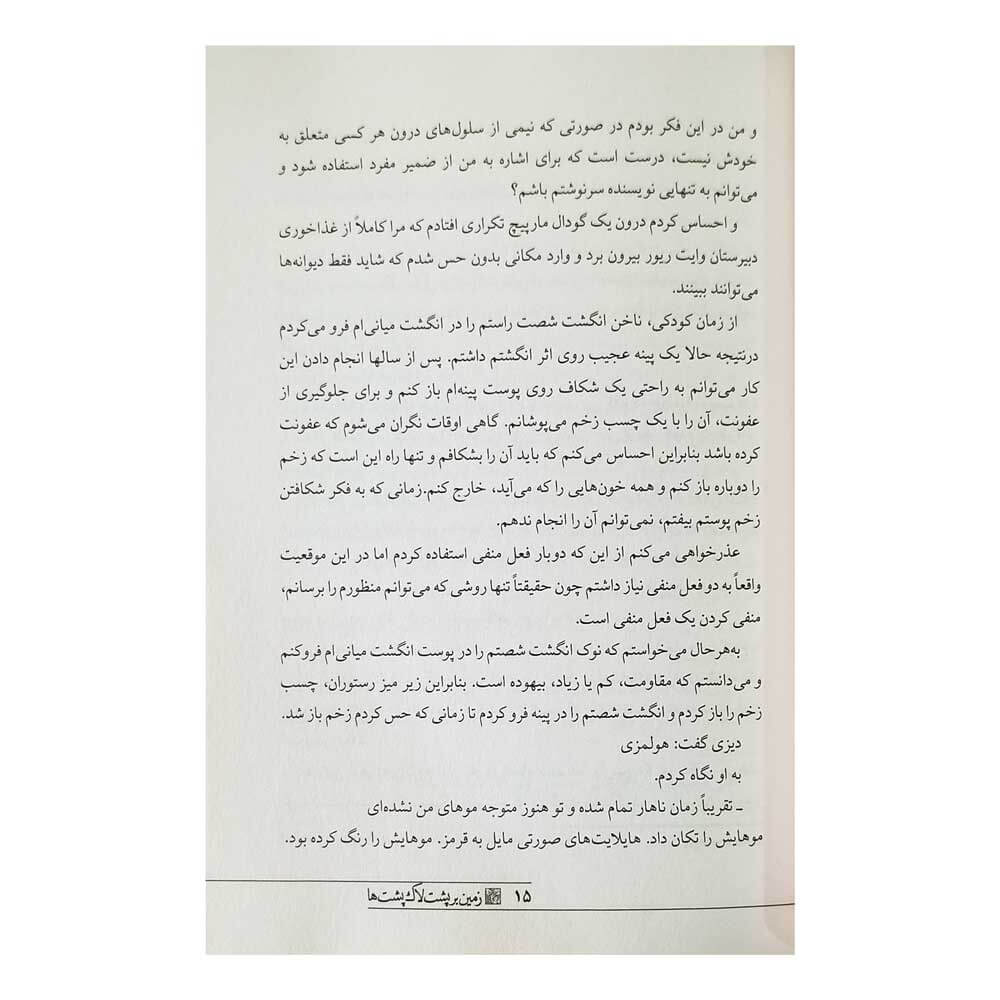 و من در این فکر بودم در صورتی که نیمی از سلول‌های درون هر کسی متعلق به
خودش نیست، درست است که برای اشاره به من از ضمیر مفرد استفاده شود و
می‌توانم به تنهایی نویسنده سرنوشتم باشم؟
و احساس کردم درون یک گودال مارپیچ تکراری افتادم که مرا کاملاً از غذاخوری
دبیرستان وایت ریور بیرون برد و وارد مکانی بدون حس شدم که شاید فقط دیوانه‌ها
می‌توانند ببینند.
از زمان کودکی، ناخن انگشت شصت راستم را در انگشت میانی‌ام فرو می‌کردم
درنتیجه حالا یک پینه عجیب روی اثر انگشتم داشتم. پس از سالها انجام دادن این
کار می‌توانم به راحتی یک شکاف روی پوست پینه‌ام باز کنم و برای جلوگیری از
عفونت، آن را با یک چسب زخم می‌پوشانم. گاهی اوقات نگران می‌شوم که عفونت
کرده باشد بنابراین احساس می‌کنم که باید آن را بشکافم و تنها راه این است که زخم
را دوباره باز کنم و همه خون‌هایی را که می‌آید، خارج کنم.زمانی که به فکر شکافتن
زخم پوستم بیفتم، نمی‌توانم آن را انجام ندهم.
عذرخواهی می‌کنم از این که دوبار فعل منفی استفاده کردم اما در این موقعیت
واقعاً به دو فعل منفی نیاز داشتم چون حقیقتاً تنها روشی که می‌توانم منظورم را برسانم،
منفی کردن یک فعل منفی است.
به‌هرحال می‌خواستم که نوک انگشت شصتم را در پوست انگشت میانی‌ام فروکنم
و می‌دانستم که مقاومت، کم یا زیاد، بیهوده است. بنابراین زیر میز رستوران، چسب
زخم را باز کردم و انگشت شصتم را در پینه فرو کردم تا زمانی که حس کردم زخم باز شد.
دیزی گفت: هولمزی
به او نگاه کردم.
ـ تقریباً زمان ناهار تمام شده و تو هنوز متوجه موهای من نشده‌ای
موهایش را تکان داد. هایلایت‌های صورتی مایل به قرمز. موهایش را رنگ کرده بود.
۱۵ زمین بر پشت لاک‌پشت‌ها